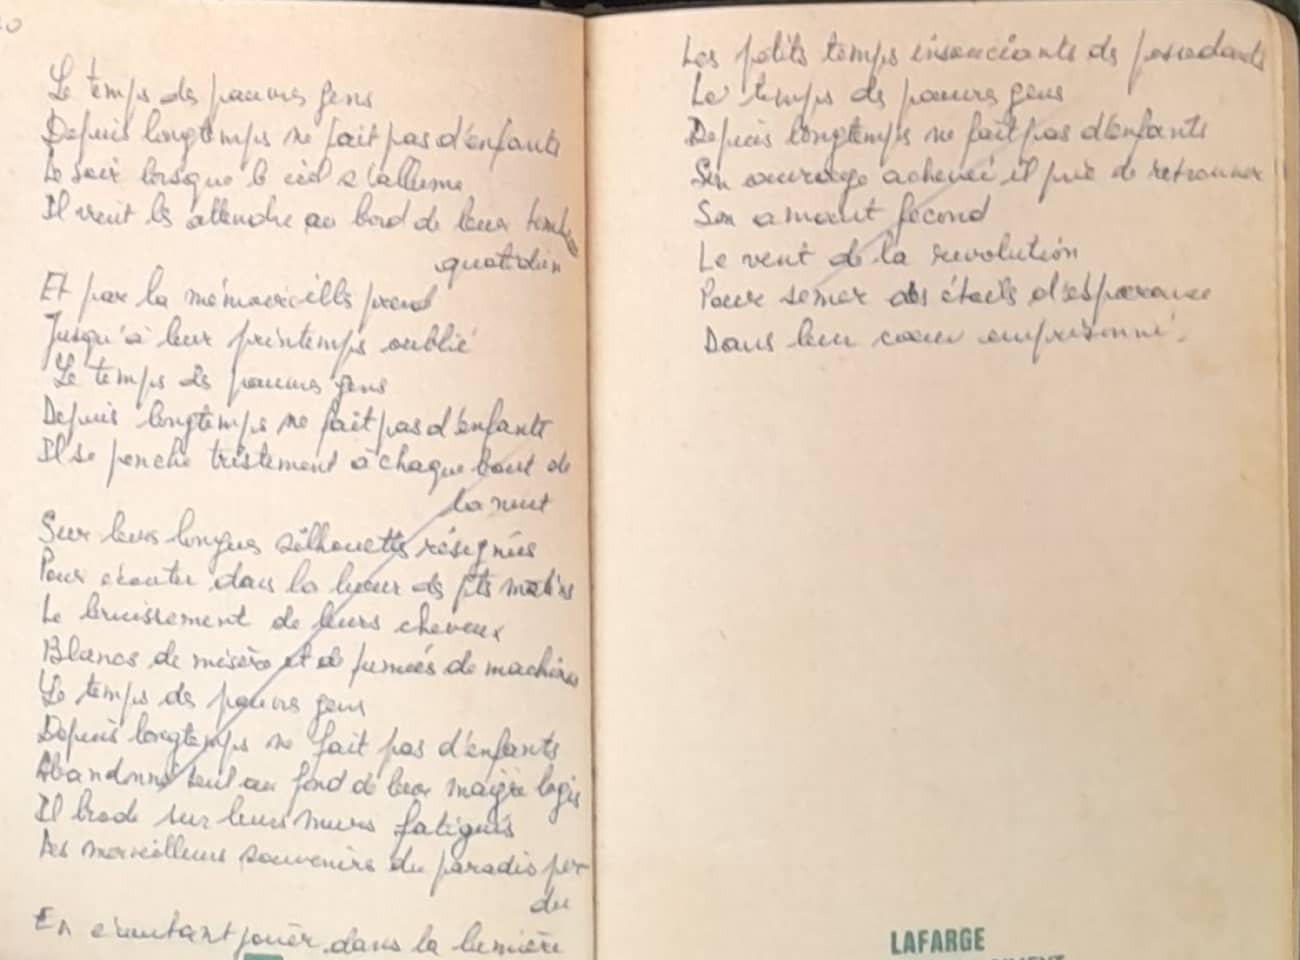 Le temps des pauvres gens
Depuis longtemps ne fait pas d'enfants
Le soir lorsque le ciel s'allume
Il vient les attendre au bord de leur
quotidien
Et par la mémoire ills prend
Jusqu'à leur printemps oublié
Le temps des pauvres gens
Depuis longtemps ne fait pas d'enfants
Il se penche tristement à chaque bout de
la nuit
Sur leurs longues silhouettes résignées
Pour écouter dans la lueur des pts matins
Le bruissement de leurs cheveux
Blancs de misère et de fumées de machines
Le temps des pauvres gens
Depuis longtemps ne fait pas d'enfants
Abandonné seul au fond de leur maigre logis
Il brode sur leurs murs fatigués
Des merveilleux souvenirs du paradis per
du
En écoutant jouer dans la lumière
Les petits temps insouciants des possedants
Le temps des pauvres gens
Depuis longtemps ne fait pas d'enfants
Son ouvrage achevé il prie de retrouver
Son amant fécond
Le vent de la revolution
Pour semer des éclats d'espérance
Dans leur coeur emprisonné.
LAFARGE